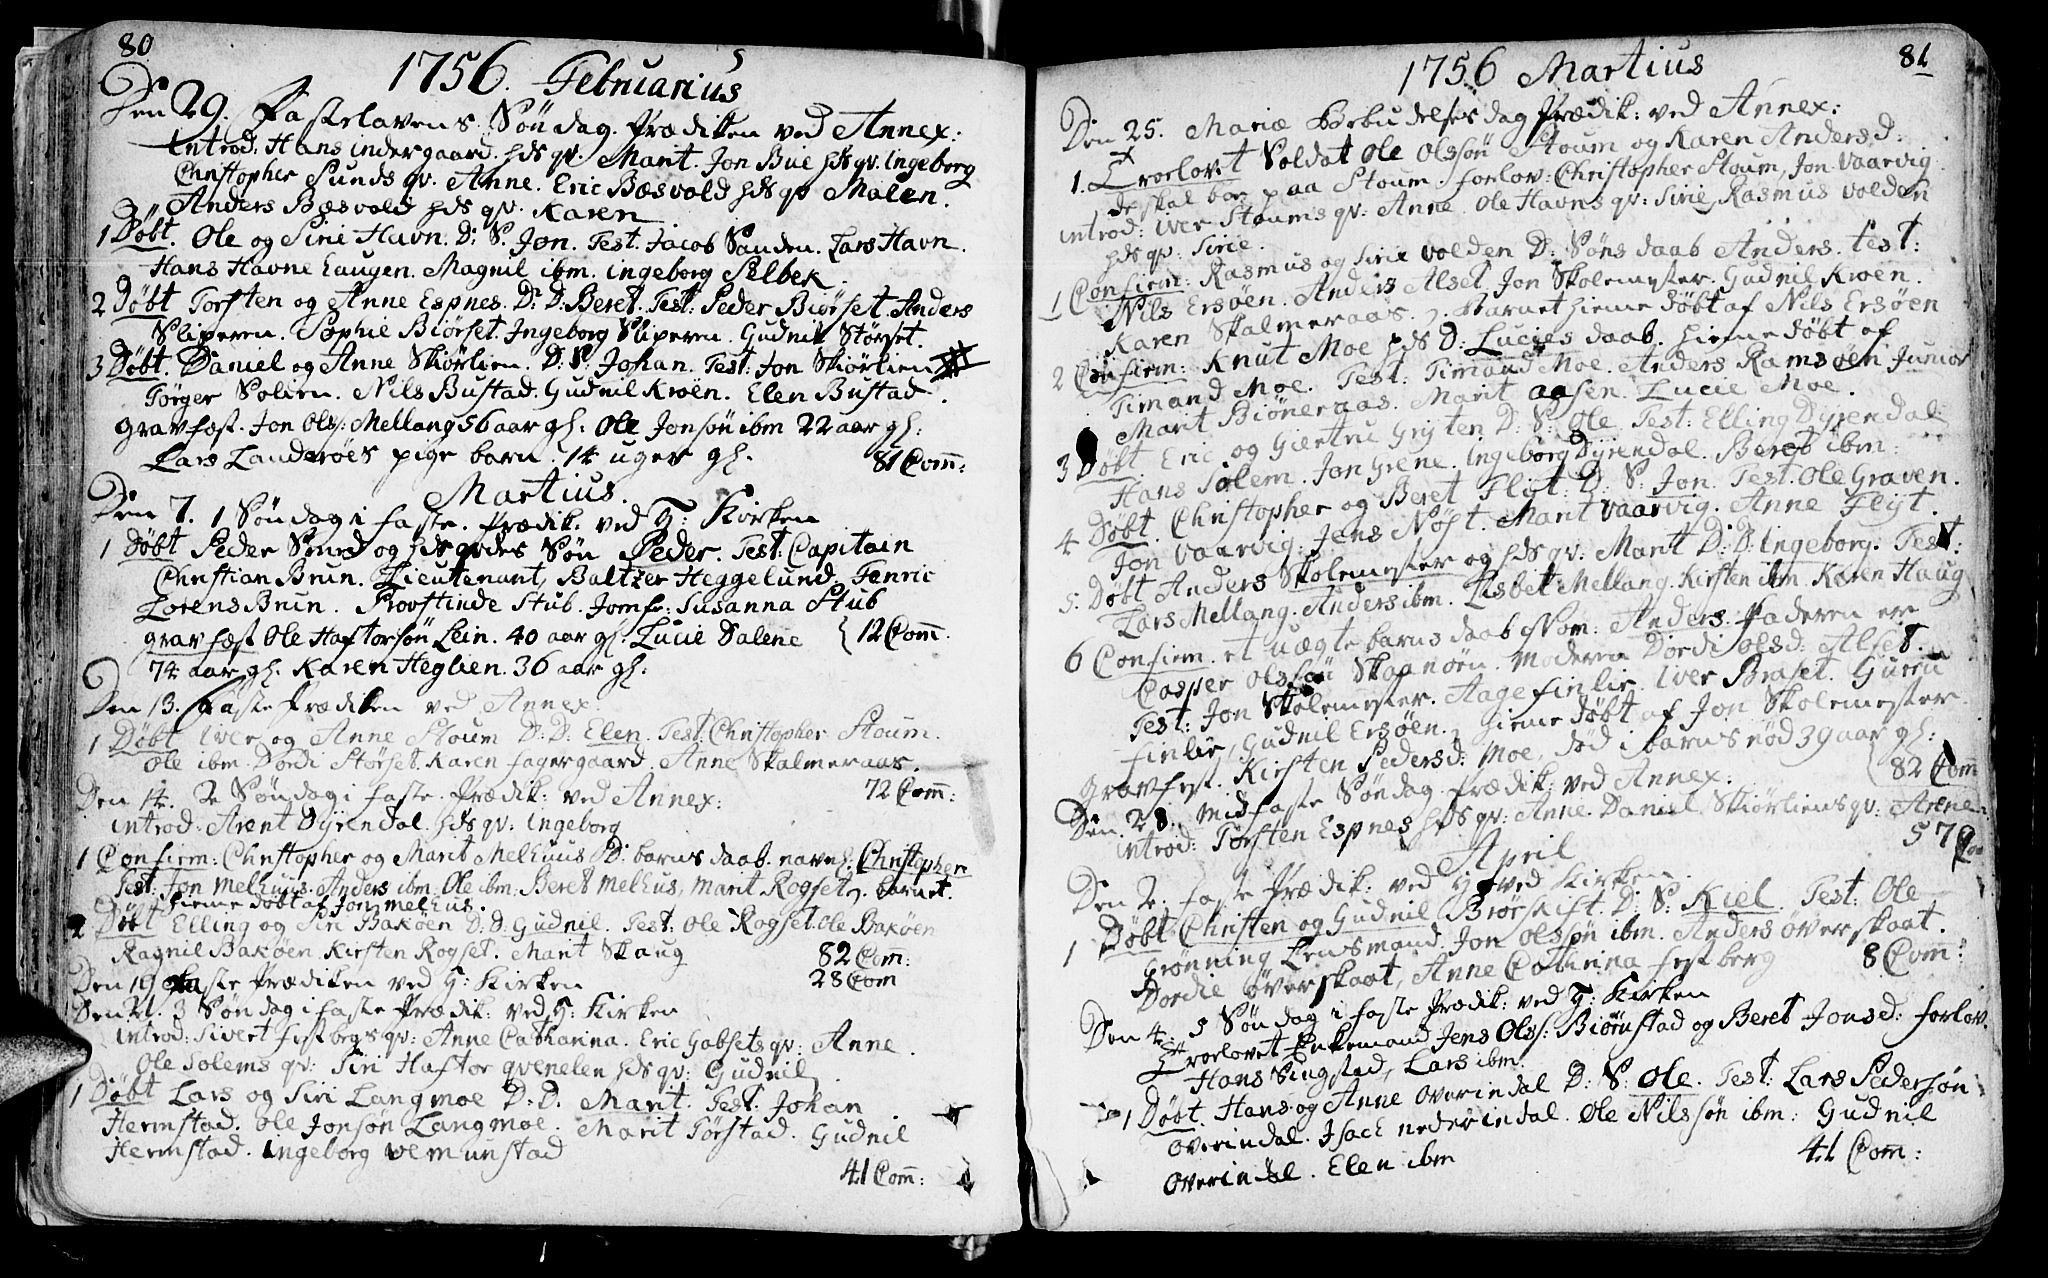 80
1756. Februarius
Den 29. Fastelavens Søndag. Prædiken ved Annex:
Introd: Hans indergaard. hds qv. Marit. Jon Bue hds qv. Ingeborg
Christopher Sunds qv. Anne. Eric Bæsvold hds qv Malen.
Anders Bæsvold hds qv. Karen
1 Døbt. Ole og Siri Havn. D: S. Jon. Test. Jacob Sanden. Lars Havn.
Hans Havne Haugen. Magnil ibm. ingeborg Selbek
2 Døbt Torsten og Anne Espnes. D: D: Beret. Test: Peder Biørset. Anders
Sliperen. Sophie Biørset. Ingeborg Sliperen. Gudnil Størset.
3 Døbt. Daniel og Anne Skiørlien. D: S. Johan. Test: Jon Skiørlien
Torger Solem. Nils Bustad. Gudnil Kroen. Elen Bustad.
Gravfæst. Jon Ols: Mellang 56 aar gl: Ole Jonsøn ibm 22 aar gl:
Lars Landerøes pige barn. 14 uger gl. 81 Com:
Martius.
Den 7. 1 Søndag i faste. Prædik: ved H: Kirken
1 Døbt Peder Smed og hds qvdes Søn Peder. Test: Capitain
Christian Brun. Lieutenant, Baltzer Heggelund. Fenric
Lorens Brun. Provstinde Stub. Jomfr: Susanna Stub
gravfæst Ole Haftorsøn Lein. 40 aar gl. Lucie Dalene { 12 Com:
74 aar gl. Karen Heglien. 36 aar gl:
Den 13. Faste Prædiken ved Annex:
1 Døbt Iver og Anne Stoum D: D: Elen. Test: Christopher Stoum.
Ole ibm. Dordi Størset. Karen Fagergaard. Anne Skalmeraas.
Den 14. 2 Søndag i faste. Prædik: ved Annex: 72 Com:
introd: Arent Dyrendal. hds qv: Ingeborg
1 Confirm: Christopher og Marit Melhuus D: barns daab. navnl: Christopher
Test: Jon Melhuus. Anders ibm. Ole ibm: Beret Melhus, Marit Rogset. barnet
hieme døbt af Jon Melhus.
2 Døbt Elling og Siri Bakøen D: D: Gudnil. Test: Ole Rogset. Ole Bakøen
Ragnil Bakøen. Kirsten Rogset. Marit Skaug 82 Com:
Den 19 faste Prædiken ved H: Kirken 28 Com
Den 21. 3 Søndag i faste Prædik: ved H: Kirken
introd: Sivert Festbergs qv: Anne Catharina. Eric Gabsets qv: Anne.
Ole Solems qv: Siri Haftor qvenelen hds qv: Gudnil
1 Døbt Lars og Siri Langmoe D: D. Marit. Test: Johan
Hermstad. Ole Jonsøn Langmoe. Marit Torstad. Gudnil
Hermstad. Ingeborg Vemunstad
41 Com:
81
1756 Martius
Den 25. Mariæ Bebudelses dag Prædik: ved Annex:
1. Trorlovet Soldat Ole Olssøn Stoum og Karen Andersd:
de skal boe paa Stoum. forlov: Christopher Stoum, Jon Vaarvig
introd: Iver Stoums qv: Anne. Ole Havns qv: Sirie, Rasmus volden
hds qv: Sirie.
1 Confirm: Rasmus og Sirie volden D: Søns daab Anders. test:
Nils Ersøen. Anders Alset. Jon Skolemester. Gudnil Kroen.
Karen Skalmeraas. Barnet hieme døbt af Nils Ersøen
2 Confirm: Knut Moe hds D: Lucies daab. hieme døbt af
Timand Moe. Test: Timand Moe. Anders Ramsøen Junior
Marit Biøneraas. Marit aasen. Lucie Moe.
3 Døbt. Eric og Giertru Gryten D: S: Ole. Test: Elling Dyrendal
Hans Solem. Jon Grene. Ingeborg Dyrendal. Beret ibm:
4 Døbt. Christopher og Beret Flyt: D: S: Jon. Test. Ole Graven.
Jon Vaarvig: Jens Nøst. Marit Vaarvig. Anne Flyt.
5. Døbt Anders Skolemester og hds qv: Marit D: D: Ingeborg. Test:
Lars Mellang. Anders ibm. Lisbet Mellang. Kirsten ibm. Karen Haug
6 Confirm. et uægte barns daab Nom: Anders. Faderen er
Casper Olssøn Skapnøen. Moderen Dordi Olsd: Alset.
Test: Jon Skolemester. Aage Finlie. Iver Braset. Guren
Finlie, Gudnil Ersøen. hieme døbt af Jon Skolemester
Gravfest. Kirsten Pedersd: Moe, død i barns nød 39 aar gl:
82 Com
Den 28. Midfaste Søndag Prædik: ved Annex:
introd: Torsten Espnes hds qv: Anne. Daniel Skiørliens qv: Anne
57 Com
April
Den 2. faste Prædik: ved H: Kirken.
1 Døbt Christen og Gudnil Brørskift. D: S: Kiel. Test: Ole
Grønning Lensmand. Jon Olssøn ibm. Anders Øverskaat.
Dordie Øverskaat, Anne Catharina Festberg 8 Com:
Den 4. 5 Søndag i faste Prædik: ved H: Kirken
Trorlovet Enkemand Jens Olss: Biørnstad og Beret Jonsd: forlov.
Hans Singstad, Lars ibm.
1 Døbt. Hans og Anne Overindal D: S: Ole. Test: Lars Pedersøn
overindal. Isach nederindal. Ole Nilssøn ibm: Gudnil
overindal. Elen ibm 41 Com: